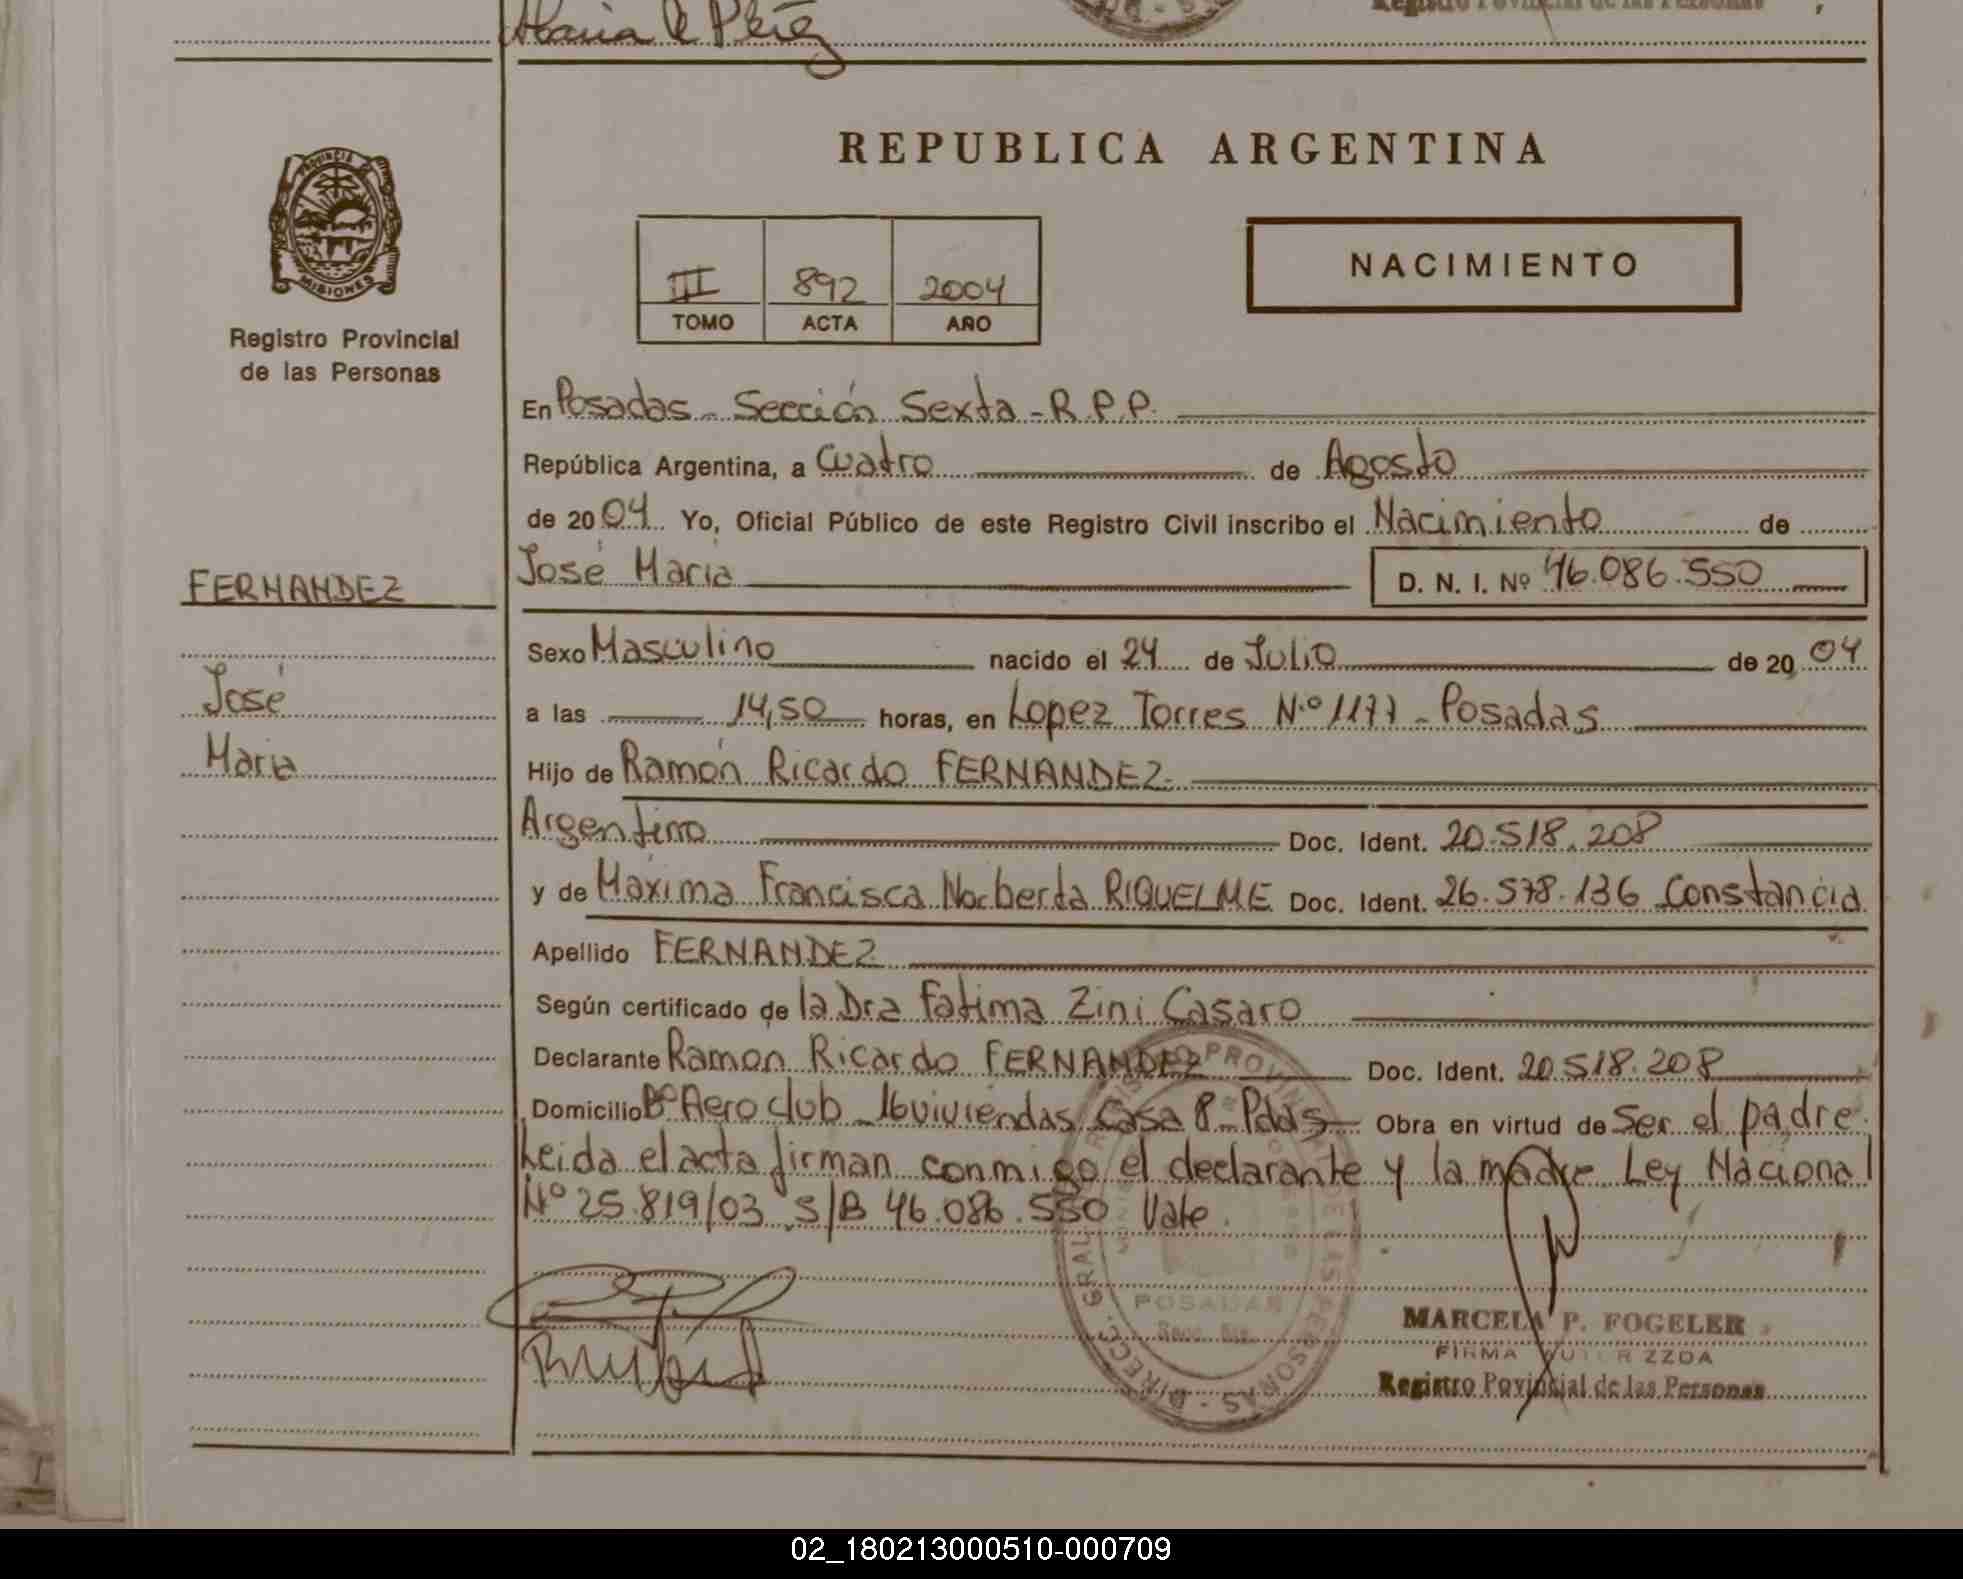 Maria E Pérez
Registro Provincial de las Personas
REPUBLICA ARGENTINA
PROVINCIA DE
MISIONES
Registro Provincial
de las Personas
III 892 2004
TOMO ACTA AÑO
NACIMIENTO
En Posadas - Sección Sexta - R.P.P.
República Argentina, a Cuatro de Agosto
de 2004 Yo, Oficial Público de este Registro Civil inscribo el Nacimiento de
FERNANDEZ
José María D. N. I. Nº 46.086.550
Sexo Masculino nacido el 24 de Julio de 2004
José
a las 14,50 horas, en Lopez Torres N.º 1177 - Posadas
Maria
Hijo de Ramón Ricardo FERNANDEZ
Argentino Doc. Ident. 20.518.208
y de Máxima Francisca Norberta RIQUELME Doc. Ident. 26.578.136 Constancia
Apellido FERNANDEZ
Según certificado de la Dra Fatima Zini Casaro
Declarante Ramon Ricardo FERNANDEZ Doc. Ident. 20.518.208
Domicilio Bº Aeroclub - 16 viviendas Casa 8 - Pdas Obra en virtud de Ser el padre.
Leida el acta firman conmigo el declarante y la madre Ley Nacional
Nº 25.819/03 S/B 46.086.550 Vale.
DIRECC. GRAL. REGISTRO PROVINCIAL DE LAS PERSONAS
POSADAS
MARCELA P. FOGELER
FIRMA AUTORIZZDA
Registro Povincial de las Personas
02_180213000510-000709